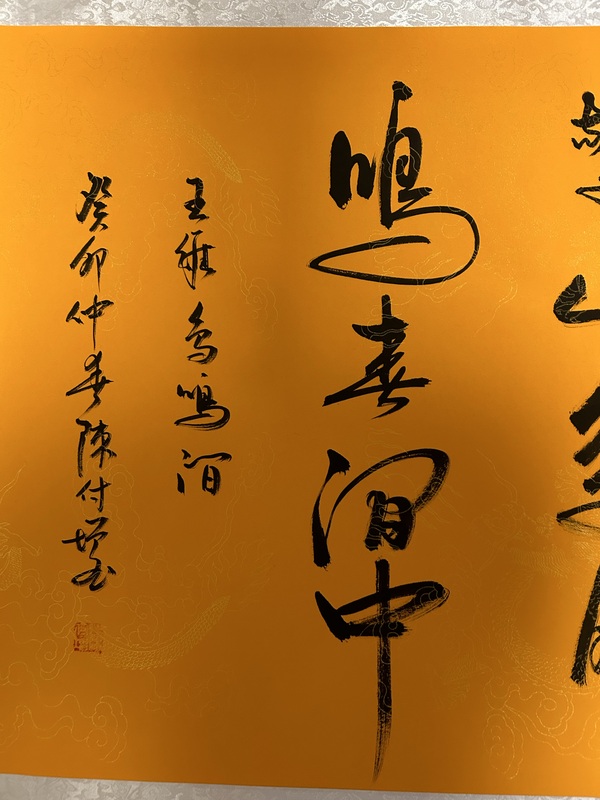 鳴春澗中
王維鳥鳴澗
癸卯仲春陳付